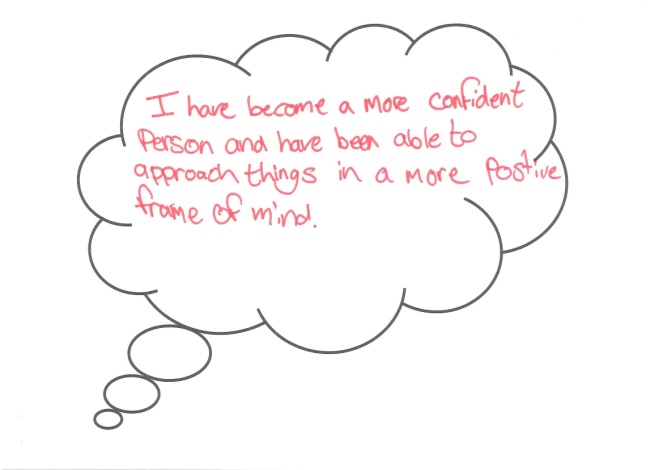 I have become a more confident
Person and have been able to
approach things in a more Postive
frame of mind.